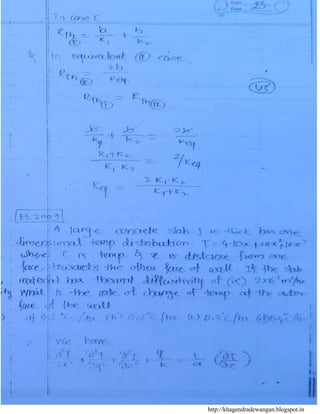 Date
Page 23
In case I
RTh(I) = b/K1 + b/K2
& In equivalent (II) case.
RTh(II) = 2b/Keq.
RTh(I) = RTh(II)
b/K1 + b/K2 = 2b/Keq
K1+K2/K1 K2 = 2/Keq
Keq = 2 K1.K2/K1+K2
ES 2009
A large concrete slab 1 m thick has one
dimensional temp distribution T = 4-10x+20x²+10x³
where T is temp & x is distance from one
face towards the other face of wall. If the slab
material has thermal diffusivity of (α) 2x10 m²/hr
What is the rate of change of temp at the outer
face of the wall
a) 0.1°C/hr (b) 0.2°C/hr (c) 0.3°C/hr (d) 0.4°C/hr
We have
∂²T/∂x² + ∂²T/∂y² + ∂²T/∂z² + q/k = 1/α (∂T/∂τ)
http://khagendradewangan.blogspot.in